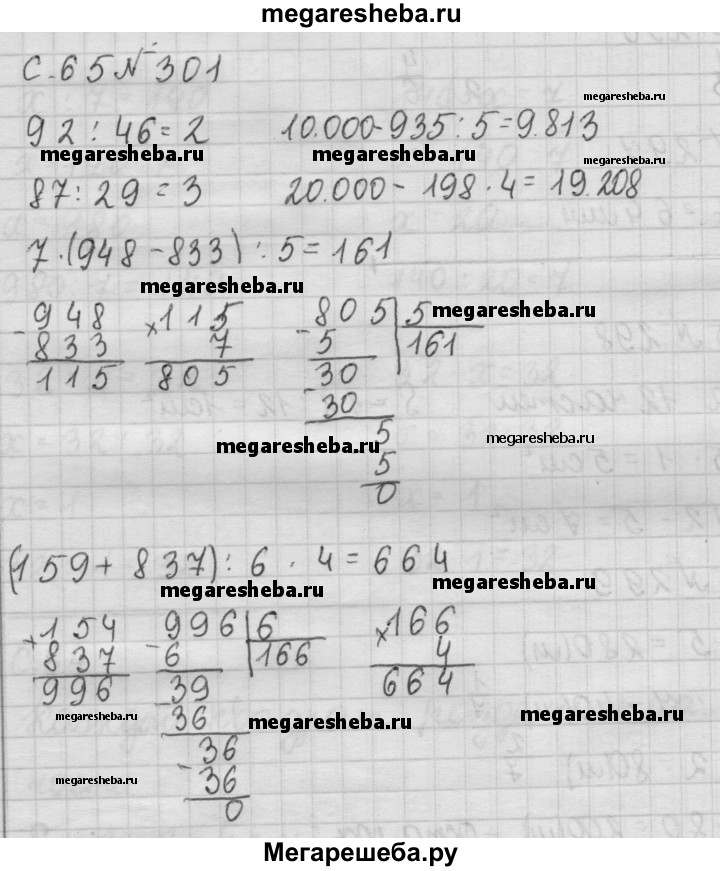 megaresheba.ru
с.65 № 301
megaresheba.ru
92 : 46 = 2 10.000-935:5=9.813
megaresheba.ru megaresheba.ru megaresheba.ru
87 : 29 = 3 20.000 - 198 · 4 = 19.208
7·(948-833) : 5 = 161
megaresheba.ru
- 948 × 115 - 805 5 megaresheba.ru
833 7 5 161
115 805 30
- 30
megaresheba.ru 5 megaresheba.ru
5
0
(159 + 837) : 6 · 4 = 664
megaresheba.ru megaresheba.ru
+ 154 - 996 6 × 166
837 6 166 4
996 39 664
megaresheba.ru 36 megaresheba.ru megaresheba.ru
- 36
megaresheba.ru 36
0
Мегарешеба.ру